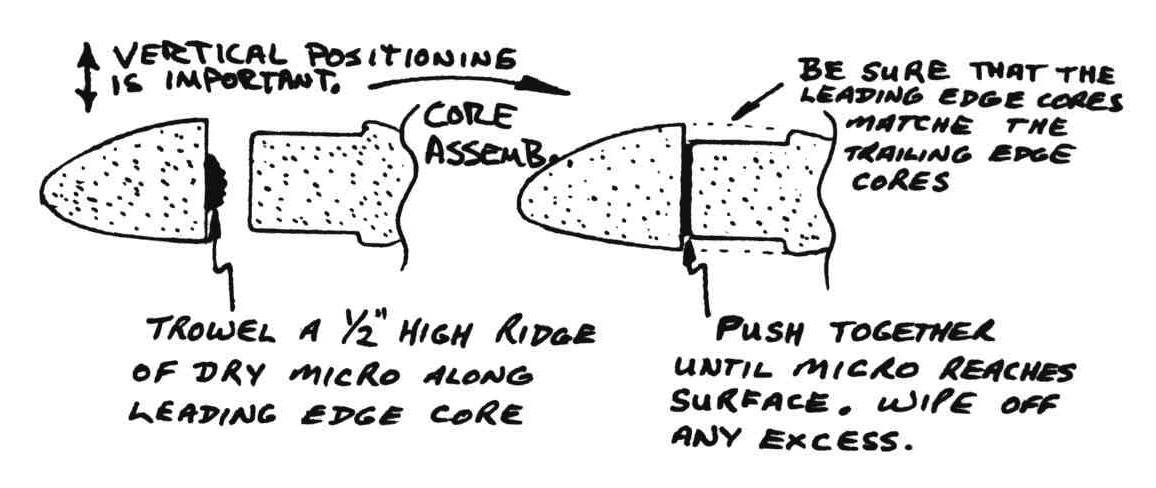 VERTICAL POSITIONING
IS IMPORTANT.
CORE
ASSEMB.
BE SURE THAT THE
LEADING EDGE CORES
MATCHE THE
TRAILING EDGE
CORES
TROWEL A 1/2" HIGH RIDGE
OF DRY MICRO ALONG
LEADING EDGE CORE
PUSH TOGETHER
UNTIL MICRO REACHES
SURFACE. WIPE OFF
ANY EXCESS.